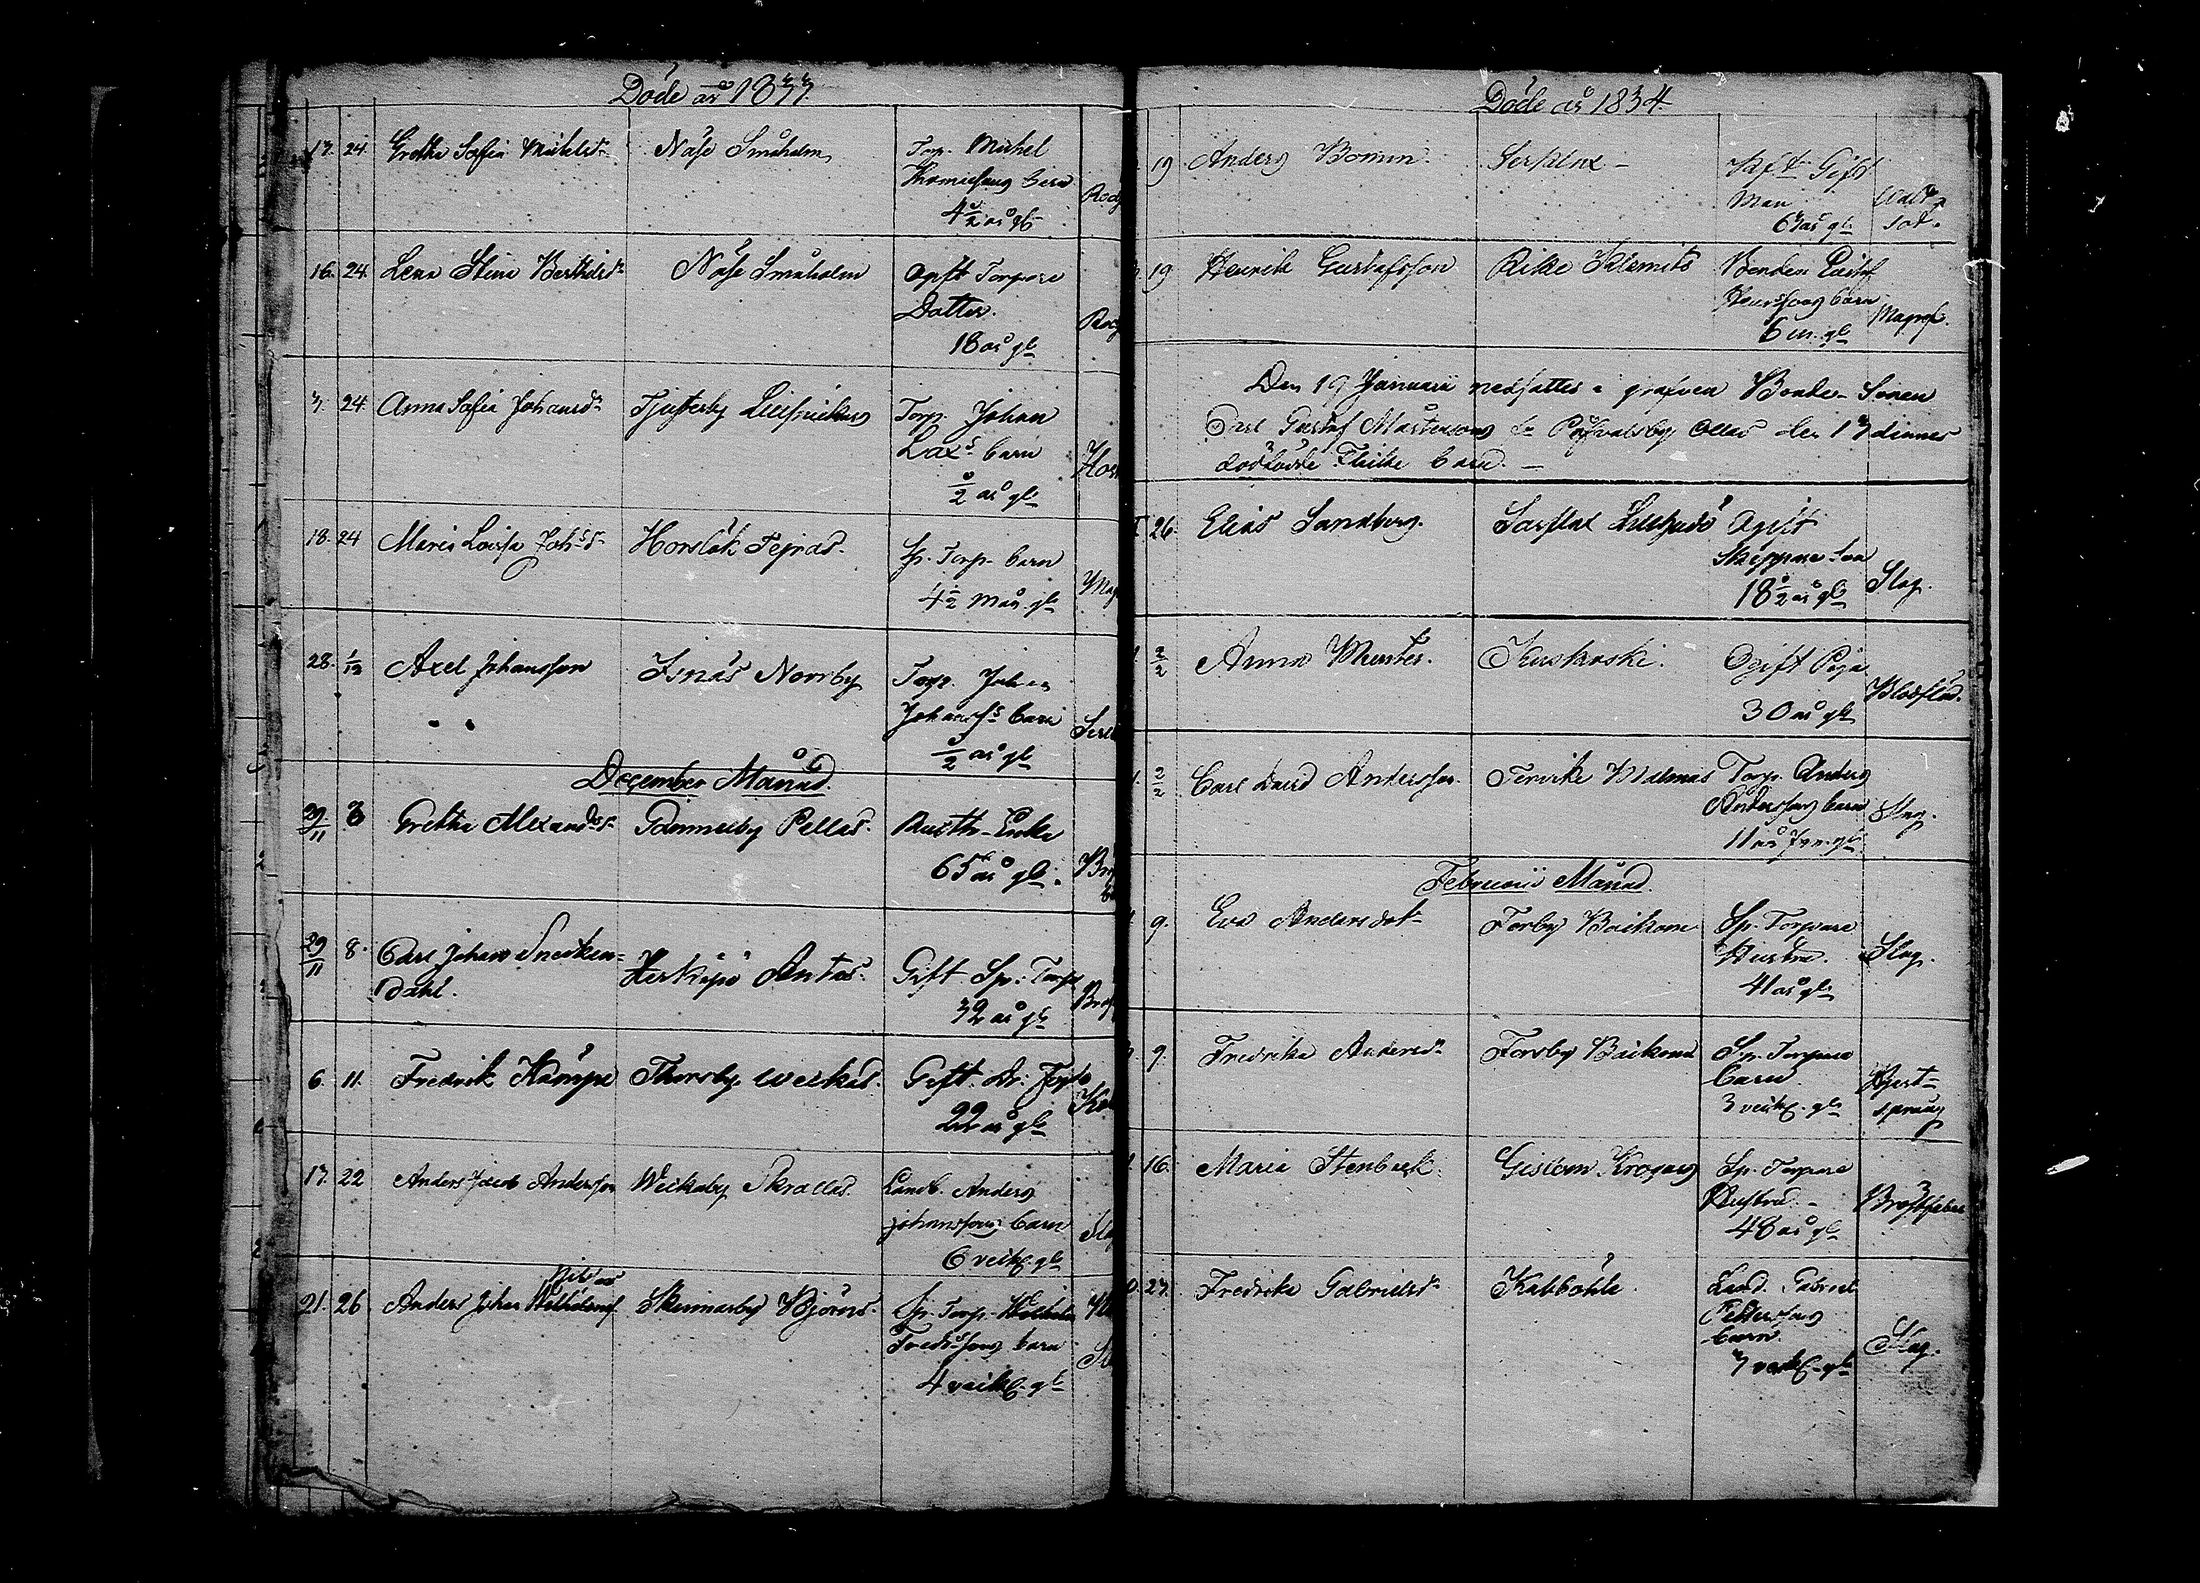 Döde år 1833.
17. 24. Gretha Sofia Michelsdr Näse Småholm Torp. Michel
Thomassons barn
4 1/2 år gl.
16. 24. Lena Stina Berthilsdr Näse Småholm Ogift Torpare
Dotter.
18 år gl.
7. 24. Anna Sofia Johansdr Tjusterby Torp. Johan
Lax's barn
1/2 år gl.
18. 24 Maria Lovisa Johsdr Horslök Tejras. Sp. Torp. barn
4 1/2 mån. gl.
28. 1/12 Axel Johansson Isnäs Norrby Torp. Johan
Johanss's barn
1/2 år gl.
December Månad.
29/11 8 Gretha Alexandersdr Gammelby Pellas. Rusth. Enka
65 år gl.
29/11 8. Carl Johan Snecken-
dahl. Härkäpä Antas. Gift Sp. Torp.
32 år gl.
6. 11. Fredrik Kämpe Thorsby Weckas. Gift Dr:
22 år gl.
17. 22 Anders Jacob Andersson Weckoby Skrallas. Landb. Anders
Johanssons barn
6 veck. gl.
21. 26 Anders Johan Wilhelmss. Skinnarby Björns. Sp. Torp. Wilhelm
Fredrssons barn
4 veck. gl.
Döde år 1834.
19 Anders Boman Sarflax - Gift
Man
63 år gl.
19 Henrik Gustafsson Rike Klemets Bonden Gustaf
Henrssons barn
6 m. gl. Magref.
Den 19 Januarii nedsattes i grafven Bonde-Sonen
Carl Gustaf Mårtensons fr. Ollas den 17 dinnes
dödfödde Flicke barn. -
26. Elias Sandberg. Sarflax Ogift
Skeppare Son
18 1/2 år gl. Slag.
2/2 Anna Munter. Kuskoski. Ogift Piga
30 år gl. Blodflöd.
2/2 Carl David Andersson. Tervike Torp. Anders
Anderssons barn
11 år gl. Slag.
Februarii Månad.
9. Eva Andersdotr Forsby Sp. Torpare
Hustru.
41 år gl. Slag.
9. Fredrika Andersdr Forsby Sp. Torpare
barn.
3 veck. gl. Hjert-
språng
16. Maria Stenbeck. Gislom Krogars Sp. Torpare
Hustru. -
48 år gl. Bröstfeber
27. Fredrika Gabrielsdr Kabböhle. Land. Gabriel
Petterssons
barn.
7 veck. gl. Slag.